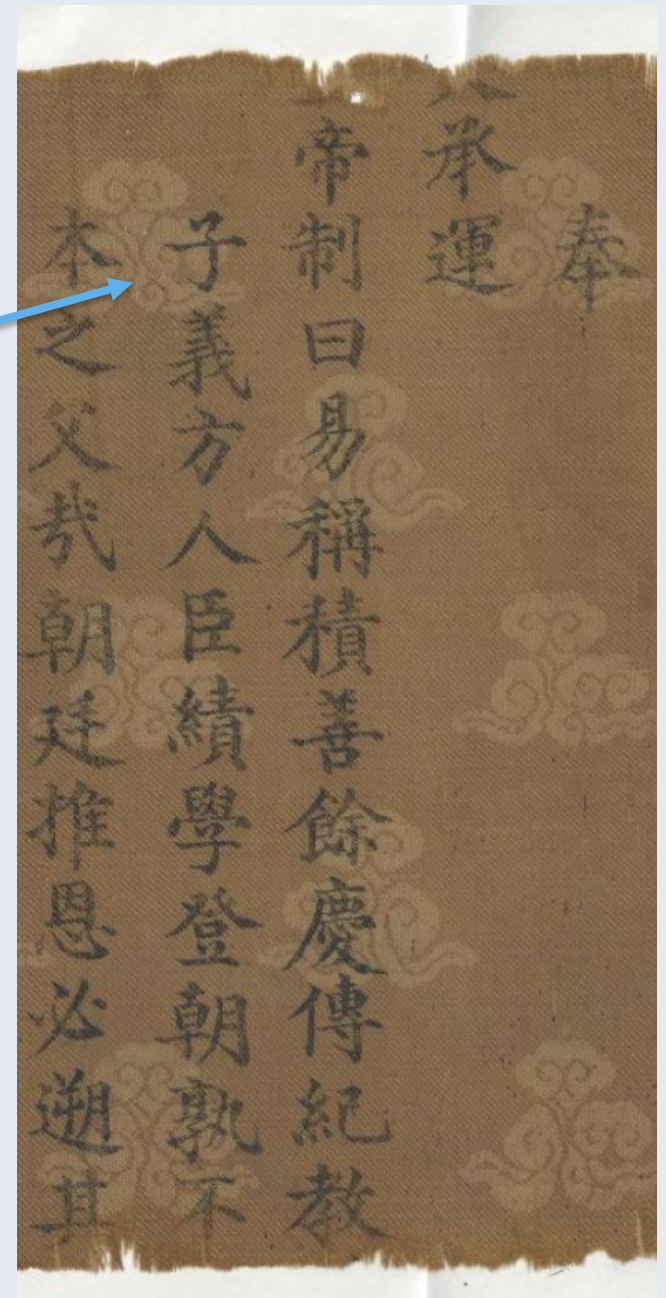 奉
天承運
帝制曰易稱積善餘慶傳紀教
子義方人臣績學登朝孰不
本之父哉朝廷推恩必遡其